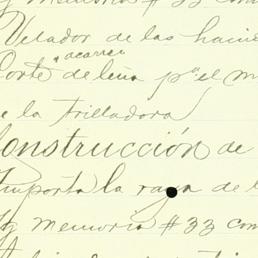 y memoria #33 com
Velador de las hacie
Corte " acarreo de leña pª el m
e la trilladora
Construcción de
Importa la raya de l
y memoria #33 com